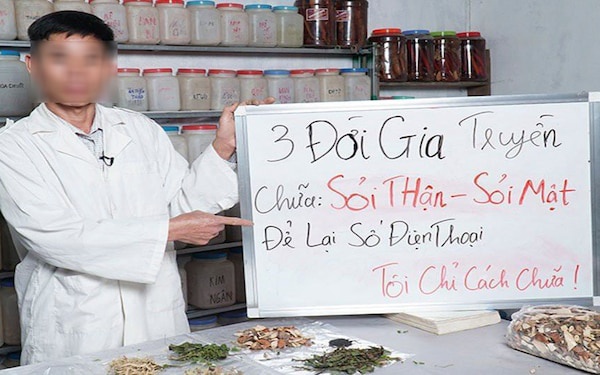 3 Đời Gia Truyền
Chữa: SỎI THẬN - SỎI MẬT
Để Lại Số Điện Thoại
Tôi Chỉ Cách Chữa !
KIM
NGÂN